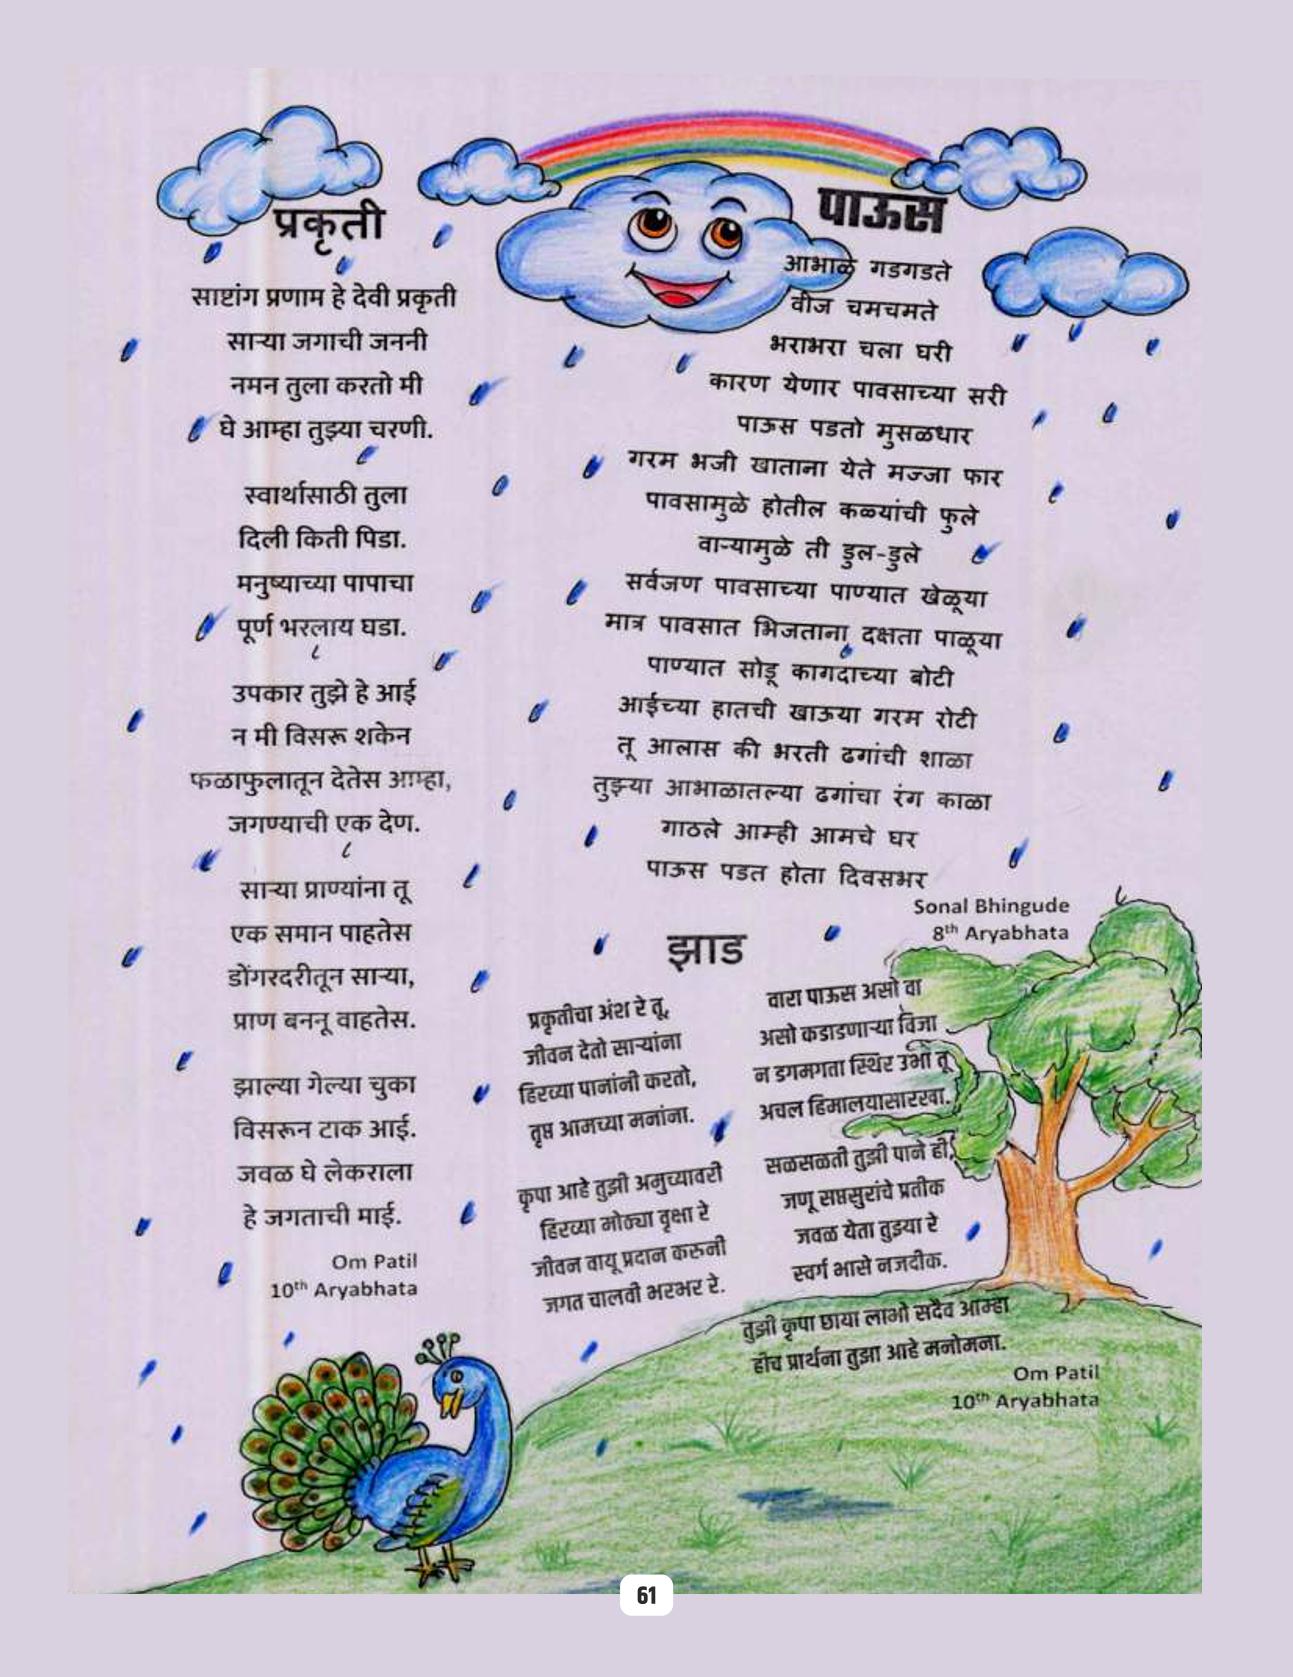 प्रकृती
साष्टांग प्रणाम हे देवी प्रकृती
साऱ्या जगाची जननी
नमन तुला करतो मी
घे आम्हा तुझ्या चरणी.
स्वार्थासाठी तुला
दिली किती पिडा.
मनुष्याच्या पापाचा
पूर्ण भरलाय घडा.
उपकार तुझे हे आई
न मी विसरू शकेन
फळाफुलातून देतेस आम्हा,
जगण्याची एक देण.
साऱ्या प्राण्यांना तू
एक समान पाहतेस
डोंगरदरीतून साऱ्या,
प्राण बननू वाहतेस.
झाल्या गेल्या चुका
विसरून टाक आई.
जवळ घे लेकराला
हे जगताची माई.
Om Patil
10th Aryabhata
पाऊस
आभाळे गडगडते
वीज चमचमते
भराभरा चला घरी
कारण येणार पावसाच्या सरी
पाऊस पडतो मुसळधार
गरम भजी खाताना येते मज्जा फार
पावसामुळे होतील कळ्यांची फुले
वाऱ्यामुळे ती डुल-डुले
सर्वजण पावसाच्या पाण्यात खेळूया
मात्र पावसात भिजताना दक्षता पाळूया
पाण्यात सोडू कागदाच्या बोटी
आईच्या हातची खाऊया गरम रोटी
तू आलास की भरती ढगांची शाळा
तुझ्या आभाळातल्या ढगांचा रंग काळा
गाठले आम्ही आमचे घर
पाऊस पडत होता दिवसभर
Sonal Bhingude
8th Aryabhata
झाड
प्रकृतीचा अंश रे तू,
जीवन देतो साऱ्यांना
हिरव्या पानांनी करतो,
तृप्त आमच्या मनांना.
कृपा आहे तुझी अमुच्यावरी
हिरव्या मोठ्या वृक्षा रे
जीवन वायू प्रदान करुनी
जगत चालवी भरभर रे.
वारा पाऊस असो वा
असो कडाडणाऱ्या विजा
न डगमगता स्थिर उभा तू
अचल हिमालयासारखा.
सळसळती तुझी पाने ही,
जणू सप्तसुरांचे प्रतीक
जवळ येता तुझ्या रे
स्वर्ग भासे नजदीक.
तुझी कृपा छाया लाभो सदैव आम्हा
हीच प्रार्थना तुझा आहे मनोमना.
Om Patil
10th Aryabhata
61